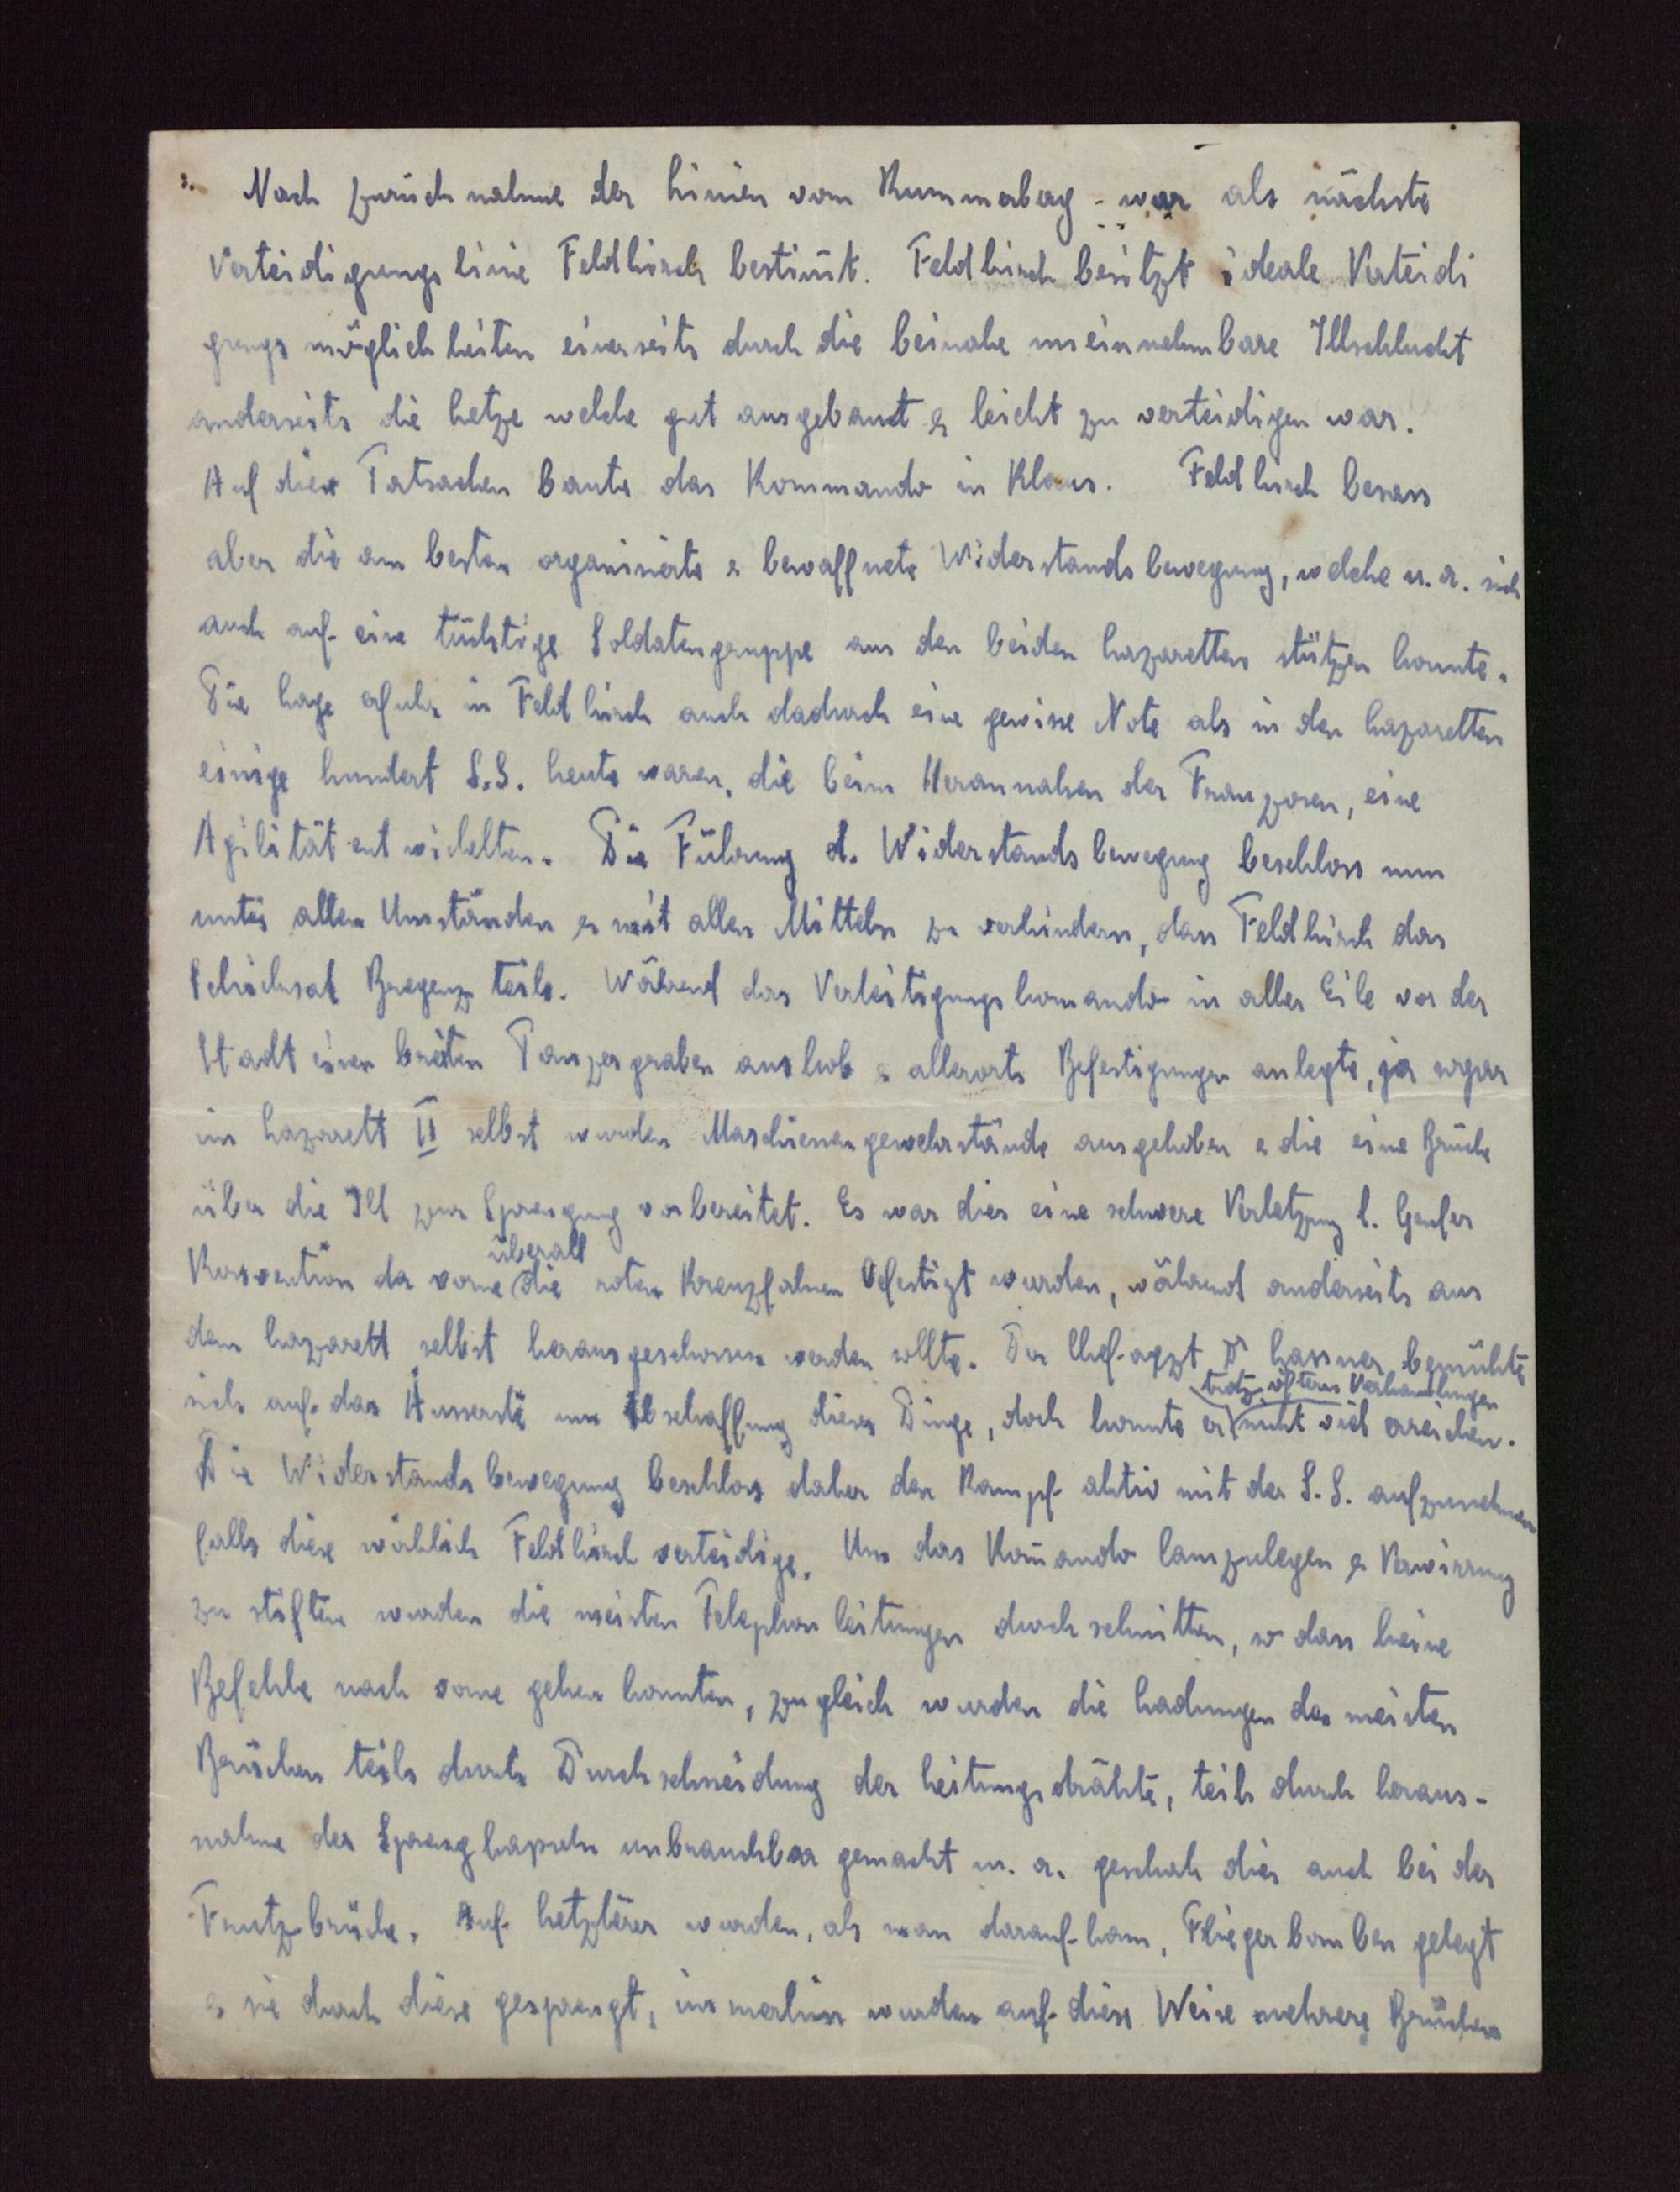 3. Nach Zurücknahme der Linien vom Kummerberg - war als nächste
Verteidigungslinie Feldkirch bestim̄t. Feldkirch besitzt ideale Verteidi
gungsmöglichkeiten einerseits durch die beinahe uneinnehmbare Illschlucht
anderseits die Letze welche gut ausgebaut & leicht zu verteidigen war.
Auf diese Tatsachen baute das Kommando in Klaus. Feldkirch besass
aber die am besten organisierte & bewaffnete Widerstandsbewegung, welche u. a. sich
auch auf eine tüchtige Soldatengruppe aus den beiden Lazaretten stützen konnte.
Die Lage erfuhr in Feldkirch auch dadurch eine gewisse Note als in den Lazaretten
einige hundert S.S. Leute waren, die beim Herannahen der Franzosen, eine
Agilität entwickelten. Die Führung d. Widerstandsbewegung beschloss nun
unter allen Umständen & mit allen Mitteln zu verhindern, dass Feldkirch das
Schicksal Bregenz teile. Während das Verteitigungskomando in aller Eile vor der
Stadt einen breiten Panzergraben aushob & allerorts Befestigungen anlegte, ja sogar
im Lazarett II selbst wurden Maschienengewehrstände ausgehoben & die eine Brücke
über die Ill zur Sprengung vorbereitet. Es war dies eine schwere Verletzung d. Genfer
Konvention da vorne überall die roten Kreuzfahnen befestigt wurden, während anderseits aus
dem Lazarett selbst herausgeschossen werden sollte. Der Chef-arzt Dr Lassner bemühte
sich auf das Äusserste um Abschaffung dieser Dinge, doch konnte er trotz öfteren Verhandlungen nicht viel erreichen.
Die Widerstandsbewegung beschloss daher den Kampf aktiv mit der S.S. aufzunehmen
falls diese wirklich Feldkirch verteidige. Um das Kom̄ando lamzulegen & Verwirrung
zu stiften wurden die meisten Telephonleitungen durchschnitten, so dass keine
Befehle nach vorne gehen konnten, zugleich wurden die Ladungen der meisten
Brücken teils durch Durchschneidung der Leitungsdrähte, teils durch heraus-
nahme der Sprengkapseln unbrauchbar gemacht u. a. geschah dies auch bei der
Frutz-brücke. Auf Letzterer wurden, als man darauf-kam, Fliegerbomben gelegt
& sie durch diese gesprengt, immerhin wurden auf diese Weise mehrere Brücken